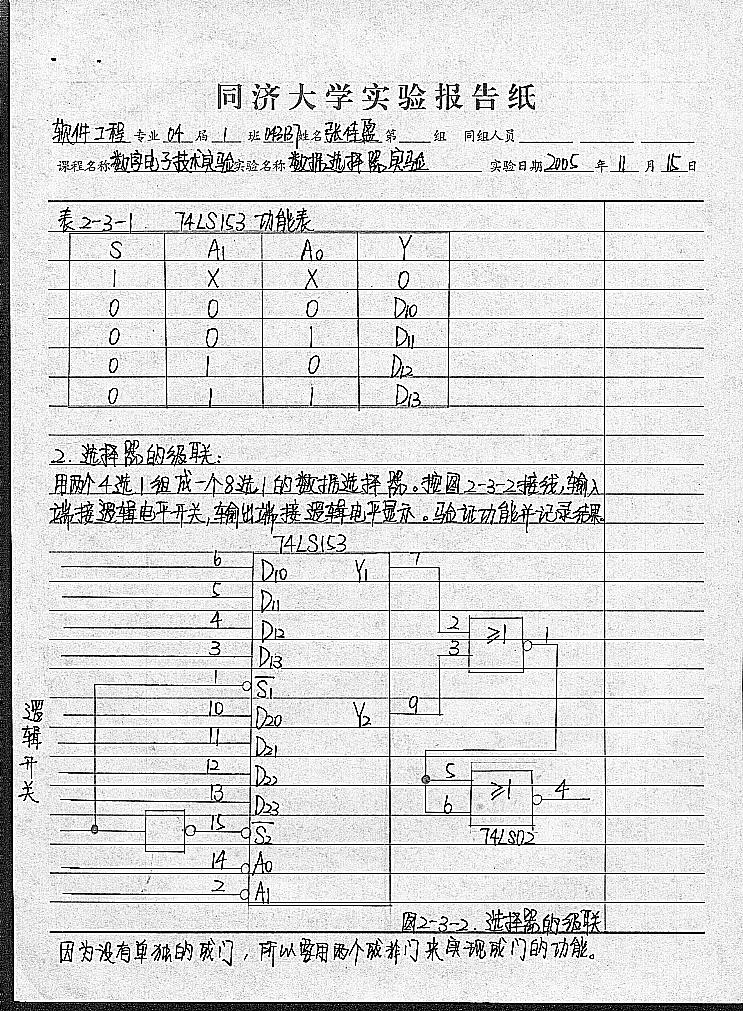 同济大学实验报告纸
软件工程 专业 04 届 1 班 姓名 张佳盈 第 组 同组人员
课程名称 数字电子技术实验 实验名称 数据选择器实验 实验日期 2005 年 11 月 15 日
表2-3-1 74LS153功能表
S A1 A0 Y
1 X X 0
0 0 0 D10
0 0 1 D11
0 1 0 D12
0 1 1 D13
2. 选择器的级联:
用两个4选1组成一个8选1的数据选择器。按图2-3-2接线,输入
端接逻辑电平开关,输出端接逻辑电平显示。验证功能并记录结果。
74LS153
6 D10 Y1 7
5 D11
4 D12 2 ≥1 1
3 D13 3
1 S̅1
10 D20 Y2 9
逻辑开关
11 D21
12 D22 5 ≥1 4
13 D23 6
15 S̅2 74LS02
14 A0
2 A1
图2-3-2. 选择器的级联
因为没有单独的或门,所以要用两个或非门来实现或门的功能。